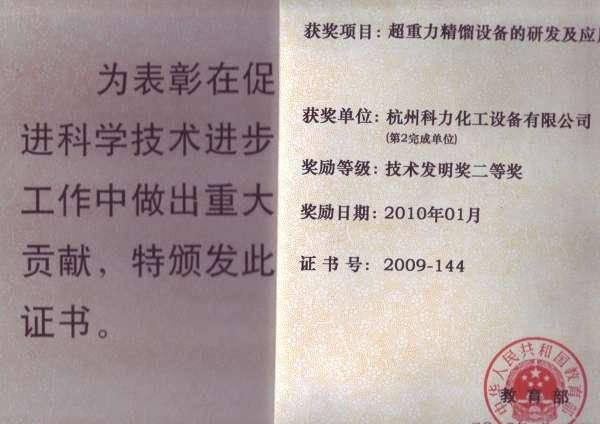 为表彰在促
进科学技术进步
工作中做出重大
贡献，特颁发此
证书。
获奖项目：超重力精馏设备的研发及应
获奖单位：杭州科力化工设备有限公司
(第2完成单位)
奖励等级：技术发明奖二等奖
奖励日期：2010年01月
证 书 号：2009-144
中华人民共和国教育部
教育部